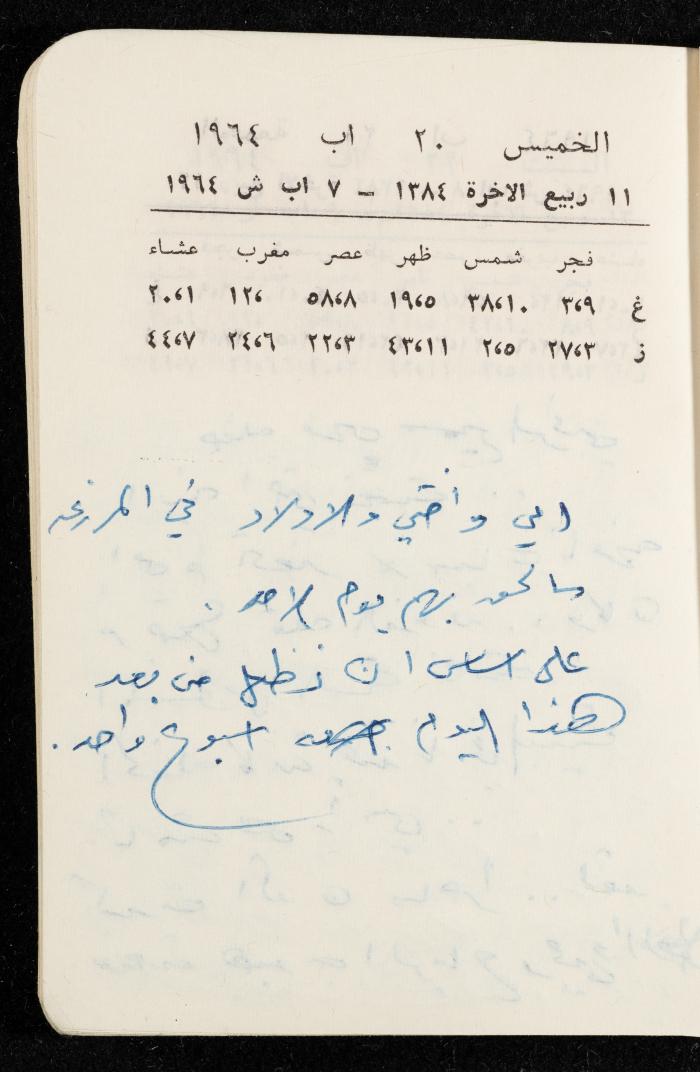 الخميس ٢٠ اب ١٩٦٤
١١ ربيع الاخرة ١٣٨٤ - ٧ اب ش ١٩٦٤
فجر شمس ظهر عصر مغرب عشاء
غ ٣،٩ ٣٨،١٠ ١٩،٥ ٥٨،٨ ١٢، ٢٠،١
ز ٢٧،٣ ٢،٥ ٤٣،١١ ٢٢،٣ ٢٤،٦ ٤٤،٧
امي وأختي والاولاد في المزرعه
سالحق بهم يوم الاحد .
على اساس ان نظل من بعد
هذا اليوم اسبوع واحد .